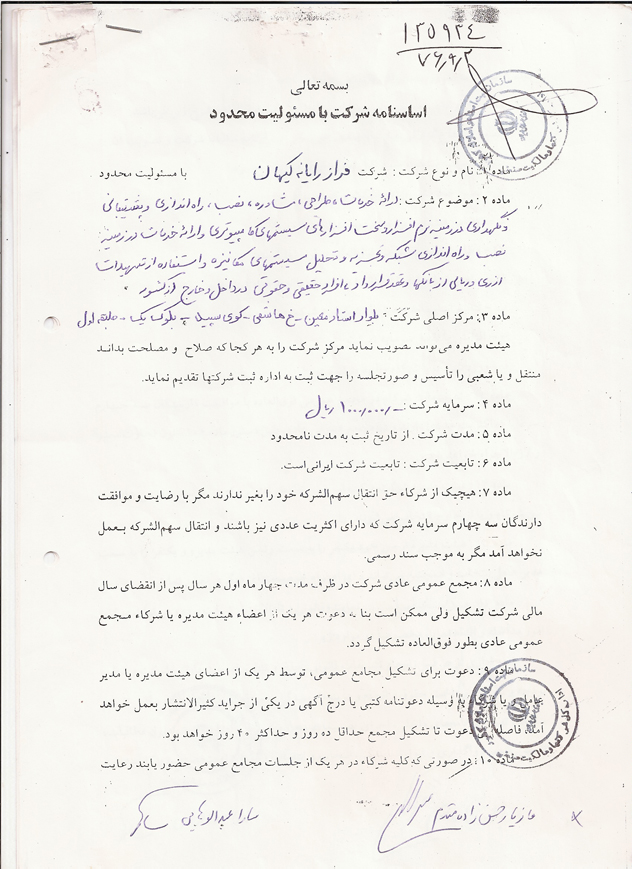 ۱۳۵۹۳۴
۷۶٫۹٫۲
بسمه تعالی
اساسنامه شرکت با مسئولیت محدود
ماده ۱: نام و نوع شرکت : شرکت فراز رایانه کیهان با مسئولیت محدود
ماده ۲ : موضوع شرکت : ارائه خدمات، طراحی، مشاوره، نصب، راه اندازی و پشتیبانی
و نگهداری در زمینه نرم افزار و سخت افزارهای سیستمهای کامپیوتری و ارائه خدمات در زمینه
نصب و راه اندازی شبکه و تجزیه و تحلیل سیستمهای مکانیزه و استفاده از تسهیلات
ارزی و ریالی از بانکها و عقد قرارداد با افراد حقیقی و حقوقی در داخل و خارج از کشور
ماده ۳: مرکز اصلی شرکت : بلوار استاد معین - خ هاشمی - کوی سپیده - بلوک یک - طبقه اول
هیئت مدیره می‌تواند تصویب نماید مرکز شرکت را به هر کجا که صلاح و مصلحت بداند
منتقل و یا شعبی را تأسیس و صورتجلسه را جهت ثبت به اداره ثبت شرکتها تقدیم نماید.
ماده ۴ : سرمایه شرکت : ۱۰۰۰٫۰۰۰٫- ریال
ماده ۵ : مدت شرکت . از تاریخ ثبت به مدت نامحدود
ماده ۶ : تابعیت شرکت : تابعیت شرکت ایرانی است.
ماده ۷ : هیچیک از شرکاء حق انتقال سهم‌الشرکه خود را بغیر ندارند مگر با رضایت و موافقت
دارندگان سه چهارم سرمایه شرکت که دارای اکثریت عددی نیز باشند و انتقال سهم‌الشرکه بعمل
نخواهد آمد مگر به موجب سند رسمی.
ماده ۸ : مجمع عمومی عادی شرکت در ظرف مدت چهار ماه اول هر سال پس از انقضای سال
مالی شرکت تشکیل ولی ممکن است بنا به دعوت هر یک از اعضاء هیئت مدیره یا شرکاء مجمع
عمومی عادی بطور فوق‌العاده تشکیل گردد.
ماده ۹ : دعوت برای تشکیل مجامع عمومی، توسط هر یک از اعضای هیئت مدیره یا مدیر
عامل و یا شرکاء به وسیله دعوتنامه کتبی یا درج آگهی در یکی از جراید کثیرالانتشار بعمل خواهد
آمد. فاصله دعوت تا تشکیل مجمع حداقل ده روز و حداکثر ۴۰ روز خواهد بود.
ماده ۱۰ : در صورتی که کلیه شرکاء در هر یک از جلسات مجامع عمومی حضور یابند رعایت
مازیار حسن زاده مقدم
سارا عبدالوهابی